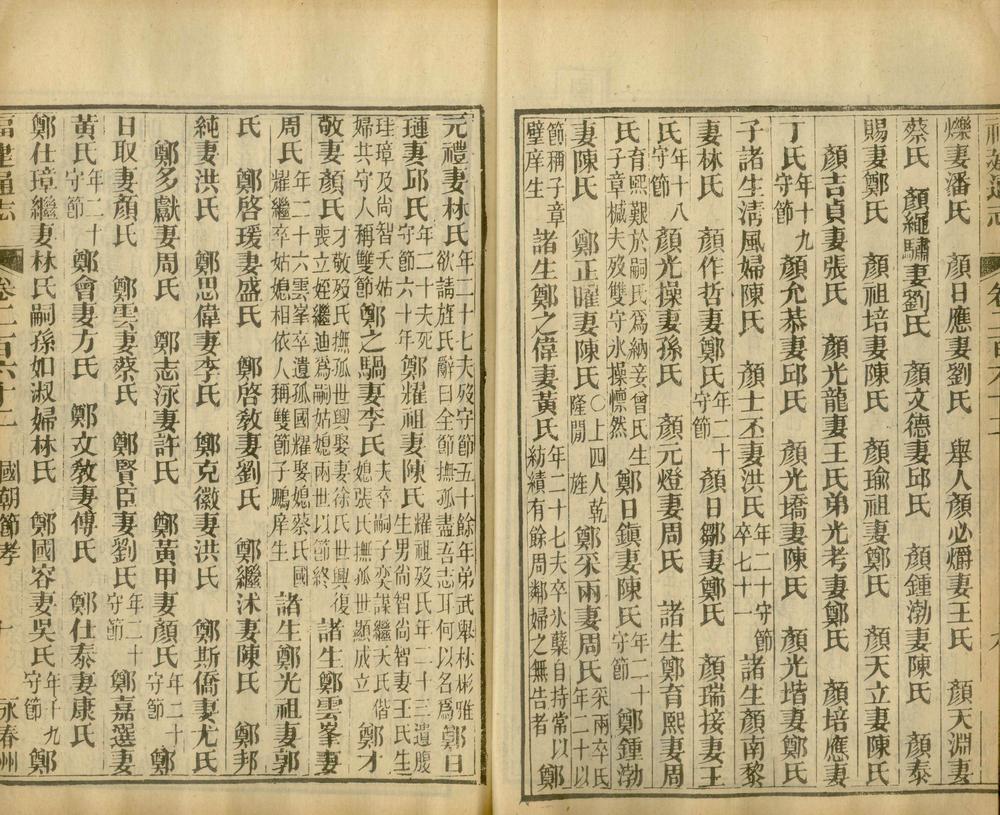 爍妻潘氏 顏日應妻劉氏 舉人顏必爝妻王氏 顏天淵妻
蔡氏 顏繩驌妻劉氏 顏文德妻邱氏 顏鍾渤妻陳氏 顏泰
賜妻鄭氏 顏祖培妻陳氏 顏瑜祖妻鄭氏 顏天立妻陳氏
顏吉貞妻張氏 顏光龍妻王氏弟光考妻鄭氏 顏培應妻
丁氏年十九守節 顏允恭妻邱氏 顏光墧妻陳氏 顏光堦妻鄭氏
子諸生淸風婦陳氏 顏士丕妻洪氏年二十守節卒七十一 諸生顏南黎
妻林氏 顏作哲妻鄭氏年二十守節 顏日鄒妻鄭氏 顏瑞接妻王
氏年十八守節 顏光操妻孫氏 顏元燈妻周氏 諸生鄭育熙妻周
氏育熙艱於嗣氏爲納妾曾氏生子章棫夫歿雙守氷操懔然 鄭日鎭妻陳氏年二十守節 鄭鍾渤
妻陳氏 鄭正曜妻陳氏〇上四人乾隆閒旌 鄭采兩妻周氏采兩卒氏年二十以
節稱子章璧庠生 諸生鄭之偉妻黃氏年二十七夫卒氷蘗自持常以紡績有餘周鄰婦之無告者 鄭
元禮妻林氏年二十七夫歿守節五十餘年弟武舉林彬雅欲請旌氏辭曰全節撫孤盡吾志耳何以名爲 鄭日
璉妻邱氏年二十夫死守節六十年 鄭燿祖妻陳氏燿祖歿氏年二十三遺腹生男尙智尙智妻王氏生
珪璋及尙智夭姑婦共守人稱雙節 鄭之騧妻李氏夫卒嗣子奕謀繼夭氏偕媳張氏撫孤世顯成立 鄭才
敬妻顏氏才敬歿氏撫孤世興娶妻徐氏世興復喪立姪繼迪爲嗣姑媳兩世以節終 諸生鄭雲峯妻
周氏年二十六雲峯卒遺孤國燿娶媳蔡氏國燿繼卒姑媳相依人稱雙節子鵬庠生 諸生鄭光祖妻郭
氏 鄭啓瑗妻盛氏 鄭啓敎妻劉氏 鄭繼沭妻陳氏 鄭邦
純妻洪氏 鄭思偉妻李氏 鄭克徽妻洪氏 鄭斯僑妻尤氏
鄭多獻妻周氏 鄭志泳妻許氏 鄭黃甲妻顏氏年二十守節 鄭
日取妻顏氏 鄭雲妻蔡氏 鄭賢臣妻劉氏年二十守節 鄭嘉選妻
黃氏年二十守節 鄭會妻方氏 鄭文敎妻傅氏 鄭仕泰妻康氏
鄭仕璋繼妻林氏嗣孫如淑婦林氏 鄭國容妻吳氏年十九守節 鄭
福建通志 卷二百六十二 國朝節孝 十 永春州